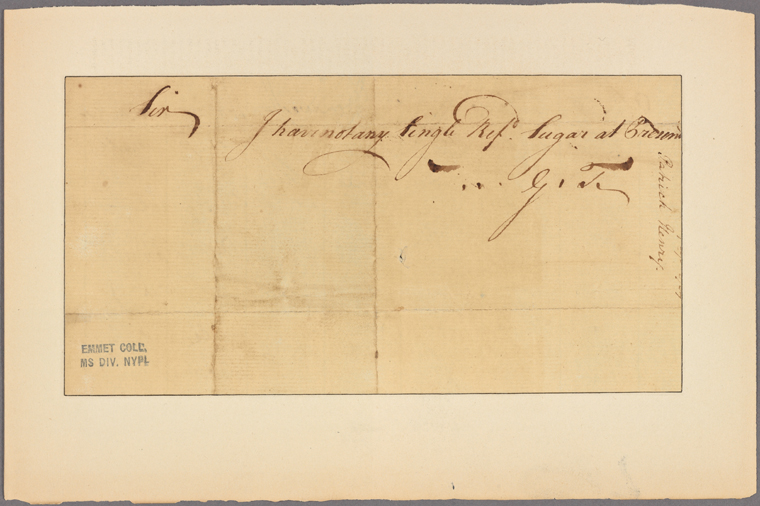 Sir
I have not any Single Refd. Sugar at Presen
G. T.
Patrick Henry.
EMMET COLL.
MS DIV. NYPL